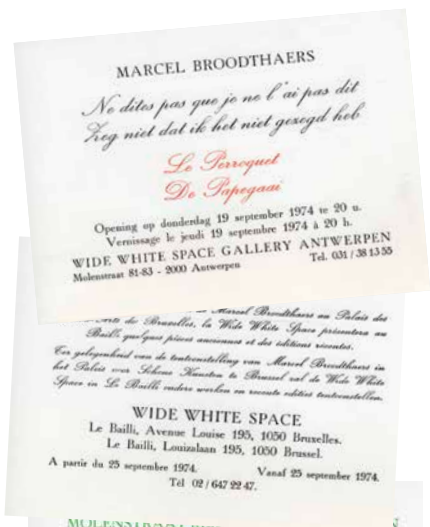 MARCEL BROODTHAERS
Ne dites pas que je ne l'ai pas dit
Zeg niet dat ik het niet gezegd heb
Le Perroquet
De Papegaai
Opening op donderdag 19 september 1974 te 20 u.
Vernissage le jeudi 19 septembre 1974 à 20 h.
WIDE WHITE SPACE GALLERY ANTWERPEN
Molenstraat 81-83 - 2000 Antwerpen Tel. 031 / 38 13 55
Marcel Broodthaers au Palais des
de Bruxelles, la Wide White Space présentera au
Bailli quelques pièces anciennes et des éditions récentes.
Ter gelegenheid van de tentoonstelling van Marcel Broodthaers in
het Paleis voor Schone Kunsten te Brussel zal de Wide White
Space in Le Bailli oudere werken en recente edities tentoonstellen.
WIDE WHITE SPACE
Le Bailli, Avenue Louise 195, 1050 Bruxelles.
Le Bailli, Louizalaan 195, 1050 Brussel.
A partir du 25 septembre 1974. Vanaf 25 september 1974.
Tél 02 / 647 22 47.